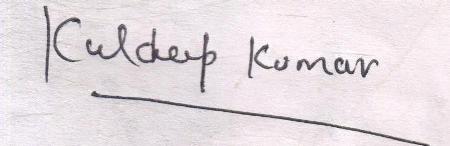 Kuldeep Kumar